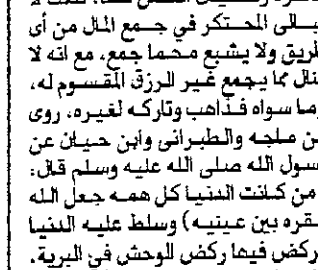 يبالى المحتكر في جمع المال من أى
طريق ولا يشبع مهما جمع، مع انه لا
ينال مما يجمع غير الرزق المقسوم له،
وما سواه فذاهب وتاركه لغيره، روى
بن ماجه والطبرانى وابن حبان عن
سول الله صلى الله عليه وسلم قال:
من كانت الدنيا كل همه جعل الله
فقره بين عينيه) وسلط عليه الدنيا
يركض فيها ركض الوحش في البرية،